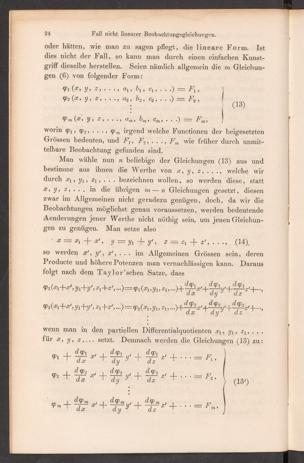 24 Fall nicht linearer Beobachtungsgleichungen.
oder hätten, wie man zu sagen pflegt, die lineare Form. Ist
dies nicht der Fall, so kann man durch einen einfachen Kunst-
griff dieselbe herstellen. Seien nämlich allgemein die m Gleichun-
gen (6) von folgender Form:
φ₁ (x, y, z, .... a₁, b₁, c₁, ...) = F₁,
φ₂ (x, y, z, .... a₂, b₂, c₂, ...) = F₂,
⋮ (13)
φₘ (x, y, z, .... aₘ, bₘ, cₘ, ...) = Fₘ,
worin φ₁, φ₂, ...., φₘ irgend welche Functionen der beigesetzten
Grössen bedeuten, und F₁, F₂, ..., Fₘ wie früher durch unmit-
telbare Beobachtung gefunden sind.
Man wähle nun n beliebige der Gleichungen (13) aus und
bestimme aus ihnen die Werthe von x, y, z, ...., welche wir
durch x₁, y₁, z₁, ... bezeichnen wollen, so werden diese, statt
x, y, z, ... in die übrigen m — n Gleichungen gesetzt, diesen
zwar im Allgemeinen nicht geradezu genügen, doch, da wir die
Beobachtungen möglichst genau voraussetzen, werden bedeutende
Aenderungen jener Werthe nicht nöthig sein, um jenen Gleichun-
gen zu genügen. Man setze also
x = x₁ + x′, y = y₁ + y′, z = z₁ + z′, ...., (14),
so werden x′, y′, z′, ... im Allgemeinen Grössen sein, deren
Producte und höhere Potenzen man vernachlässigen kann. Daraus
folgt nach dem Taylor'schen Satze, dass
φ₁(x₁+x′, y₁+y′, z₁+z′,...)=φ₁(x₁,y₁,z₁,...)+dφ₁/dx x′+dφ₁/dy y′+dφ₁/dz z′+...,
φ₂(x₁+x′, y₁+y′, z₁+z′,...)=φ₂(x₁,y₁,z₁,...)+dφ₂/dx x′+dφ₂/dy y′+dφ₂/dz z′+...,
⋮
wenn man in den partiellen Differentialquotienten x₁, y₁, z₁, ...
für x, y, z, ... setzt. Demnach werden die Gleichungen (13) zu:
φ₁ + dφ₁/dx x′ + dφ₁/dy y′ + dφ₁/dz z′ + ··· = F₁,
φ₂ + dφ₂/dx x′ + dφ₂/dy y′ + dφ₂/dz z′ + ··· = F₂,
⋮ (13′)
φₘ + dφₘ/dx x′ + dφₘ/dy y′ + dφₘ/dz z′ + ··· = Fₘ,